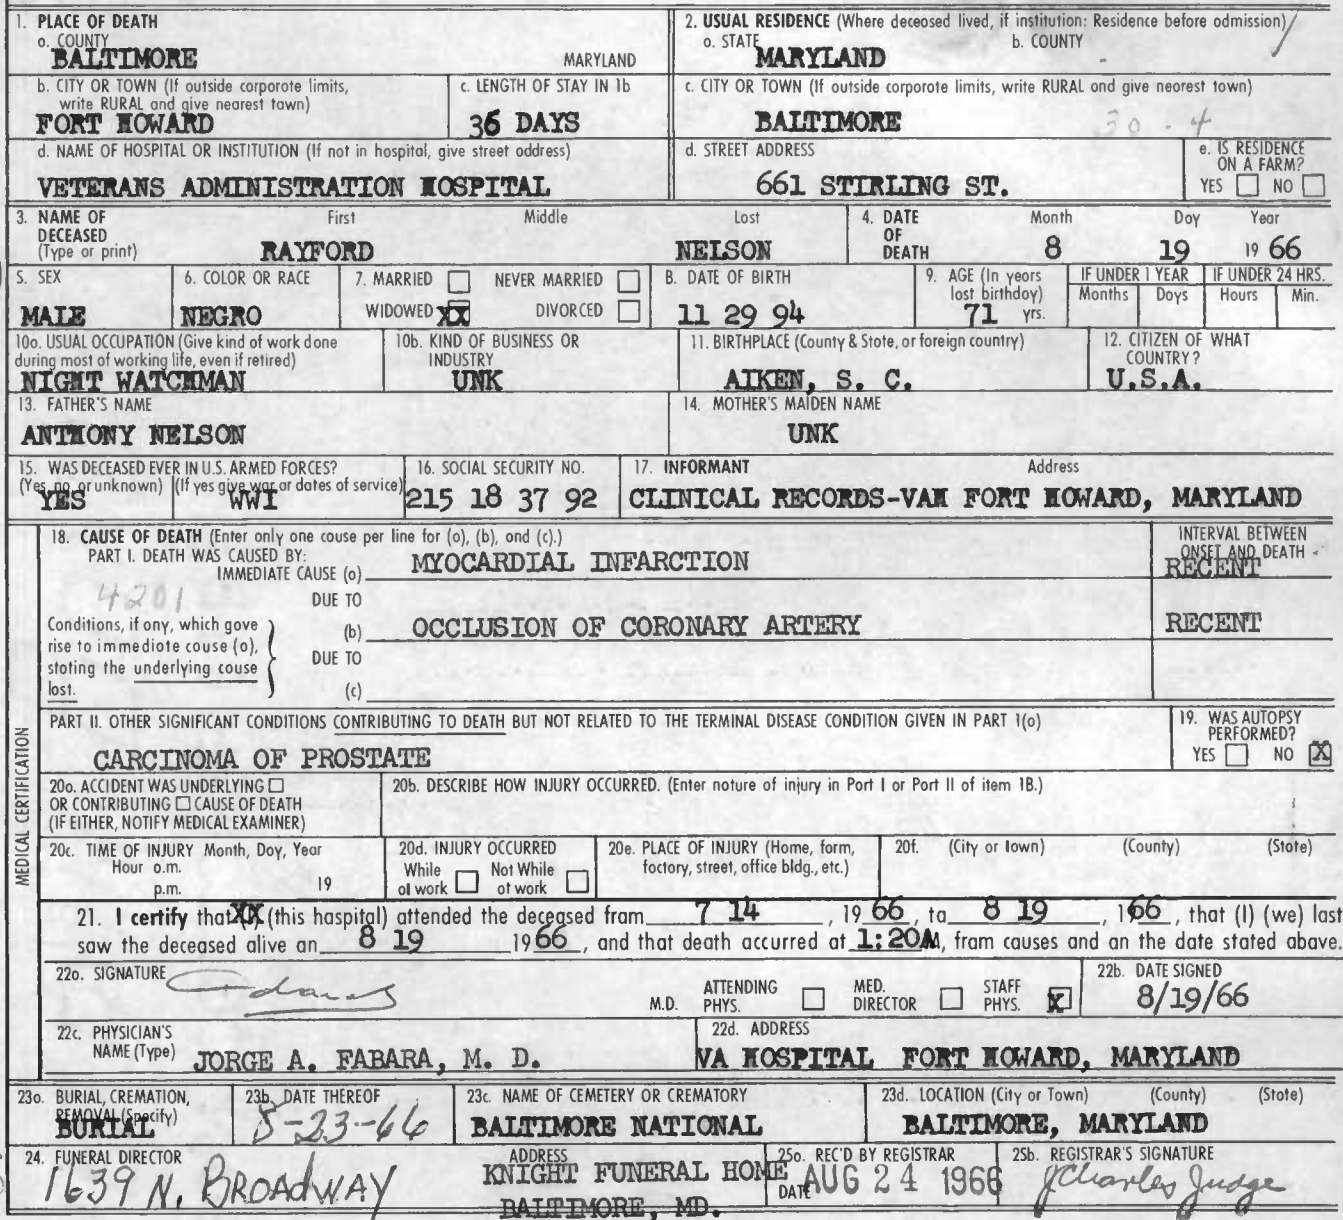 1. PLACE OF DEATH
a. COUNTY
BALTIMORE MARYLAND
2. USUAL RESIDENCE (Where deceased lived, if institution: Residence before admission)
a. STATE b. COUNTY
MARYLAND
b. CITY OR TOWN (If outside corporate limits, write RURAL and give nearest town)
FORT HOWARD
c. LENGTH OF STAY IN 1b
36 DAYS
c. CITY OR TOWN (If outside corporate limits, write RURAL and give nearest town)
BALTIMORE
30-4
d. NAME OF HOSPITAL OR INSTITUTION (If not in hospital, give street address)
VETERANS ADMINISTRATION HOSPITAL
d. STREET ADDRESS
661 STIRLING ST.
e. IS RESIDENCE ON A FARM?
YES NO
3. NAME OF DECEASED (Type or print)
First Middle Last
RAYFORD NELSON
4. DATE OF DEATH
Month Day Year
8 19 1966
5. SEX
MALE
6. COLOR OR RACE
NEGRO
7. MARRIED NEVER MARRIED
WIDOWED XX DIVORCED
8. DATE OF BIRTH
11 29 94
9. AGE (In years last birthday)
71 yrs.
IF UNDER 1 YEAR
Months Days
IF UNDER 24 HRS.
Hours Min.
10a. USUAL OCCUPATION (Give kind of work done during most of working life, even if retired)
NIGHT WATCHMAN
10b. KIND OF BUSINESS OR INDUSTRY
UNK
11. BIRTHPLACE (County & State, or foreign country)
AIKEN, S. C.
12. CITIZEN OF WHAT COUNTRY?
U.S.A.
13. FATHER'S NAME
ANTHONY NELSON
14. MOTHER'S MAIDEN NAME
UNK
15. WAS DECEASED EVER IN U.S. ARMED FORCES?
(Yes, no, or unknown) (If yes give war or dates of service)
YES WWI
16. SOCIAL SECURITY NO.
215 18 37 92
17. INFORMANT Address
CLINICAL RECORDS-VAH FORT HOWARD, MARYLAND
MEDICAL CERTIFICATION
18. CAUSE OF DEATH (Enter only one cause per line for (a), (b), and (c).)
PART I. DEATH WAS CAUSED BY:
IMMEDIATE CAUSE (a) MYOCARDIAL INFARCTION
INTERVAL BETWEEN ONSET AND DEATH
RECENT
4201
DUE TO
Conditions, if any, which gave rise to immediate cause (a), stating the underlying cause last.
(b) OCCLUSION OF CORONARY ARTERY RECENT
DUE TO
(c)
PART II. OTHER SIGNIFICANT CONDITIONS CONTRIBUTING TO DEATH BUT NOT RELATED TO THE TERMINAL DISEASE CONDITION GIVEN IN PART I(a)
CARCINOMA OF PROSTATE
19. WAS AUTOPSY PERFORMED?
YES NO X
20a. ACCIDENT WAS UNDERLYING
OR CONTRIBUTING CAUSE OF DEATH
(IF EITHER, NOTIFY MEDICAL EXAMINER)
20b. DESCRIBE HOW INJURY OCCURRED. (Enter nature of injury in Part I or Part II of item 18.)
20c. TIME OF INJURY Month, Day, Year
Hour a.m.
p.m. 19
20d. INJURY OCCURRED
While at work Not While at work
20e. PLACE OF INJURY (Home, farm, factory, street, office bldg., etc.)
20f. (City or town) (County) (State)
21. I certify that XX (this hospital) attended the deceased from 7 14, 1966, to 8 19, 1966, that (I) (we) last
saw the deceased alive on 8 19 1966, and that death occurred at 1:20AM, from causes and on the date stated above.
22a. SIGNATURE
M.D. ATTENDING PHYS. MED. DIRECTOR STAFF PHYS. X
22b. DATE SIGNED
8/19/66
22c. PHYSICIAN'S NAME (Type)
JORGE A. FABARA, M. D.
22d. ADDRESS
VA HOSPITAL FORT HOWARD, MARYLAND
23a. BURIAL, CREMATION, REMOVAL (Specify)
BURIAL
23b. DATE THEREOF
8-23-66
23c. NAME OF CEMETERY OR CREMATORY
BALTIMORE NATIONAL
23d. LOCATION (City or Town) (County) (State)
BALTIMORE, MARYLAND
24. FUNERAL DIRECTOR
1639 N. BROADWAY
ADDRESS
KNIGHT FUNERAL HOME
BALTIMORE, MD.
25a. REC'D BY REGISTRAR
DATE AUG 24 1966
25b. REGISTRAR'S SIGNATURE
J Charles Judge